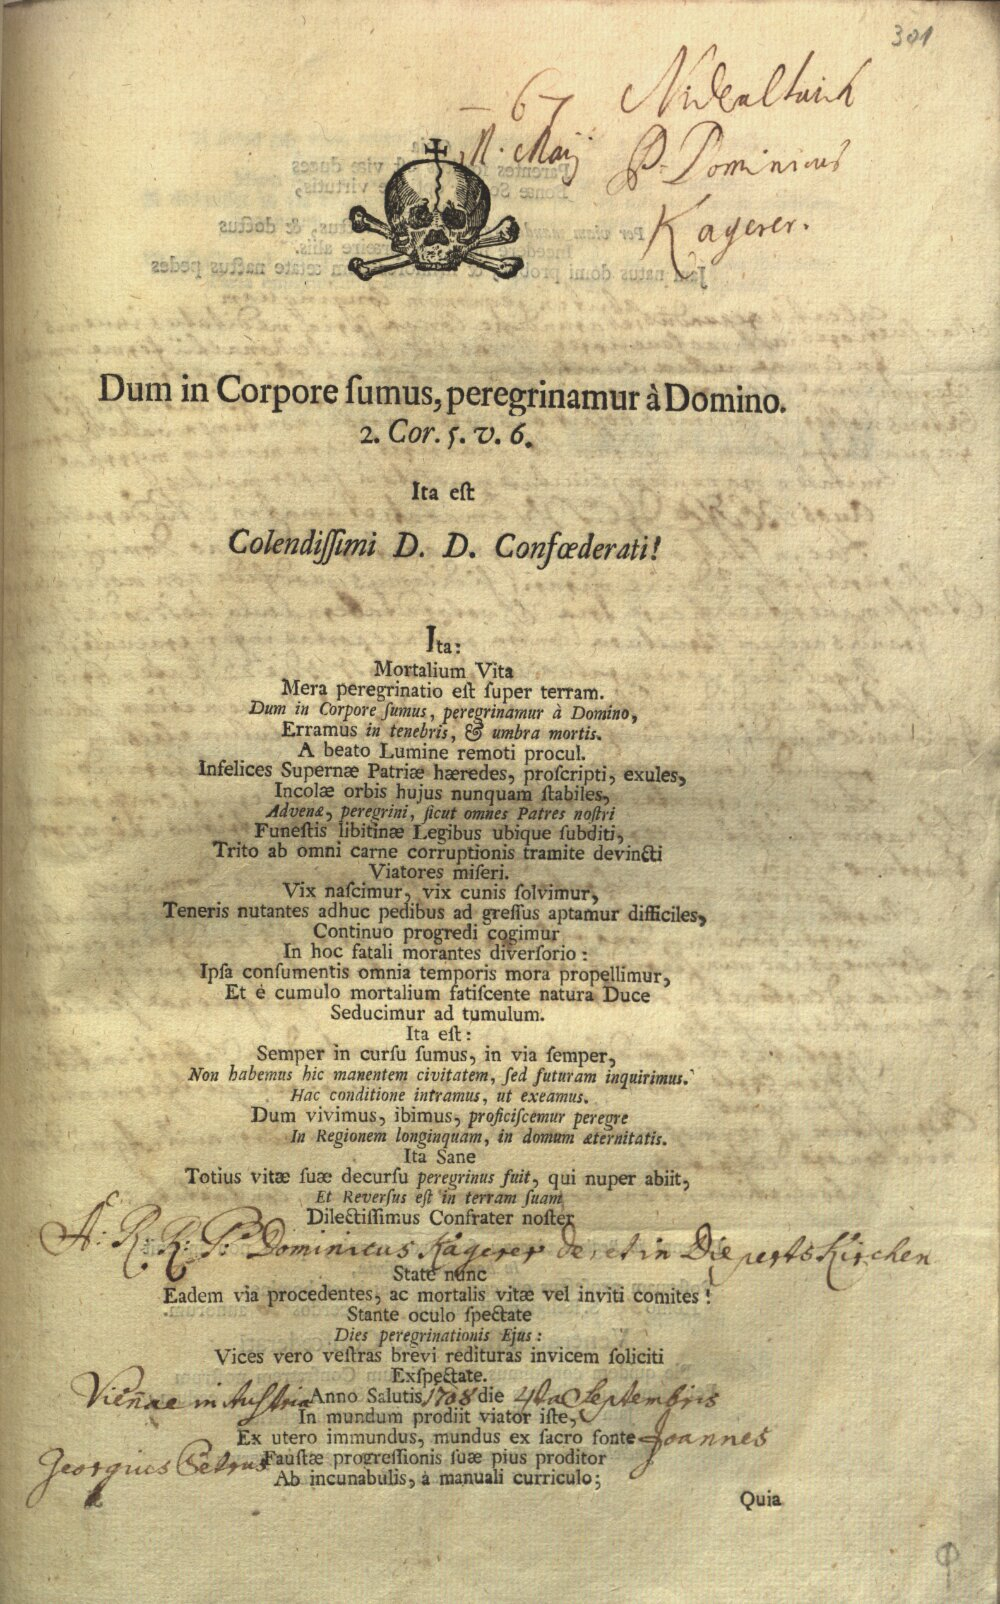 301
– 67 Nideraltaich
11. Maij P. Dominicus
Kagerer.
Dum in Corpore ſumus, peregrinamur à Domino.
2. Cor. 5. v. 6.
Ita eſt
Colendiſſimi D. D. Confœderati!
Ita:
Mortalium Vita
Mera peregrinatio eſt ſuper terram.
Dum in Corpore ſumus, peregrinamur à Domino,
Erramus in tenebris, & umbra mortis.
A beato Lumine remoti procul.
Infelices Supernæ Patriæ hæredes, proſcripti, exules,
Incolæ orbis hujus nunquam ſtabiles,
Advenæ, peregrini, ſicut omnes Patres noſtri
Funeſtis libitinæ Legibus ubique ſubditi,
Trito ab omni carne corruptionis tramite devincti
Viatores miſeri.
Vix naſcimur, vix cunis ſolvimur,
Teneris nutantes adhuc pedibus ad greſſus aptamur difficiles,
Continuo progredi cogimur
In hoc fatali morantes diverſorio:
Ipſa conſumentis omnia temporis mora propellimur,
Et é cumulo mortalium fatiſcente natura Duce
Seducimur ad tumulum.
Ita eſt:
Semper in curſu ſumus, in via ſemper,
Non habemus hic manentem civitatem, ſed futuram inquirimus.
Hac conditione intramus, ut exeamus.
Dum vivimus, ibimus, proficiſcemur peregre
In Regionem longinquam, in domum æternitatis.
Ita Sane
Totius vitæ ſuæ decurſu peregrinus fuit, qui nuper abiit,
Et Reverſus eſt in terram ſuam
Dilectiſſimus Confrater noſter
A: R: R: P: Dominicus Kagerer de, et in Diepertskirchen
State nunc
Eadem via procedentes, ac mortalis vitæ vel inviti comites!
Stante oculo ſpectate
Dies peregrinationis Ejus:
Vices vero veſtras brevi redituras invicem ſoliciti
Exſpectate.
Viennae in Austria Anno Salutis 1708 die 4ta Septembris
In mundum prodiit viator iſte,
Ex utero immundus, mundus ex ſacro fonte Joannes
Georgius Petrus Fauſtæ progreſſionis ſuæ pius proditor
Ab incunabulis, à manuali curriculo;
Quia